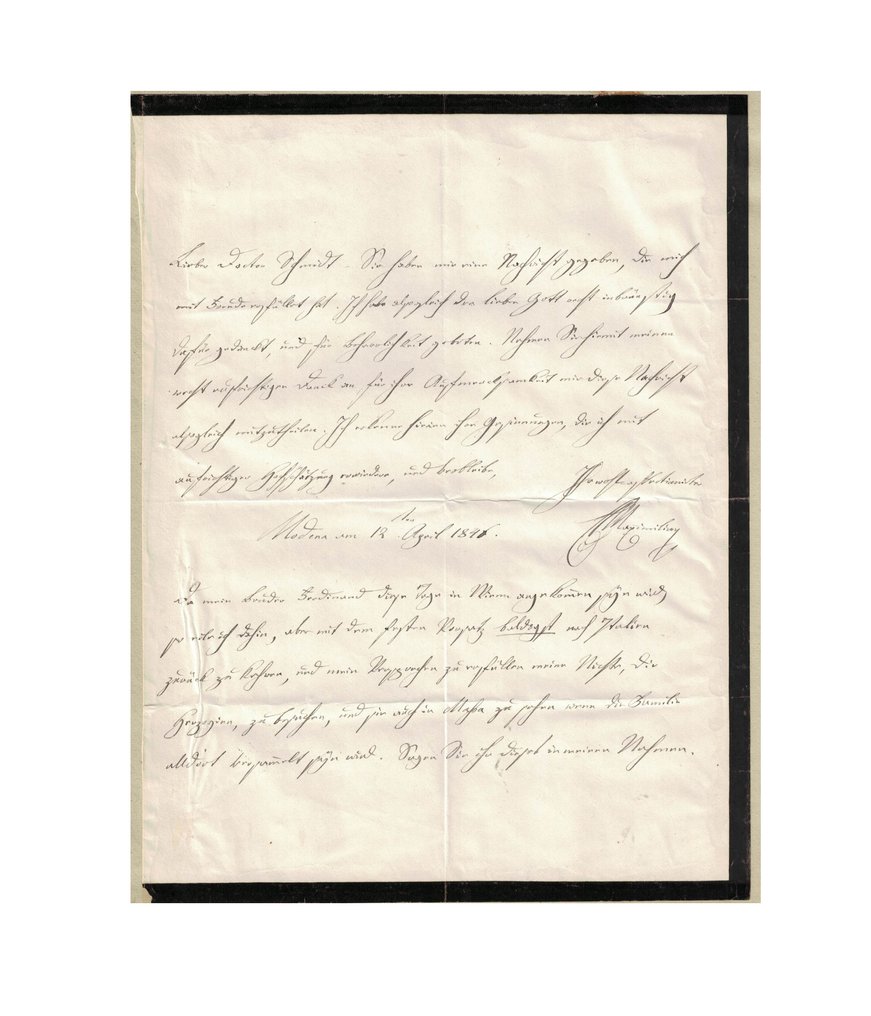 Lieber Doctor Schmidt Sie haben mir eine Nachricht gegeben, die mich
mit Freude erfüllet hat. Ich habe alsogleich den lieben Gott recht inbrünstig
dafür gedankt, und für Beharrlichkeit gebeten. Nehmen Sie hiemit meinen
recht aufrichtigen Danck an für ihre Aufmercksamkeit mir diese Nachricht
alsogleich mitzutheilen. Ich erkenne hierin ihre Gesinnungen, die ich mit
aufrichtiger Hochschätzung erwiedere, und verbleibe,
Ihr
Maximilian
Modena am 12ten April 1846.
Da mein Bruder Ferdinand diese Tage in Wienn angekommen seyn wird
so eile ich dahin, aber mit dem festen Vorsatz baldigst nach Italien
zurück zu kehren, und mein Versprechen zu erfüllen meine Nichte, die
Herzogin, zu besuchen, und sie auch in Massa zu sehen wenn die Familie
alldort versammelt seyn wird. Sagen Sie ihr dieses in meinem Nahmen.